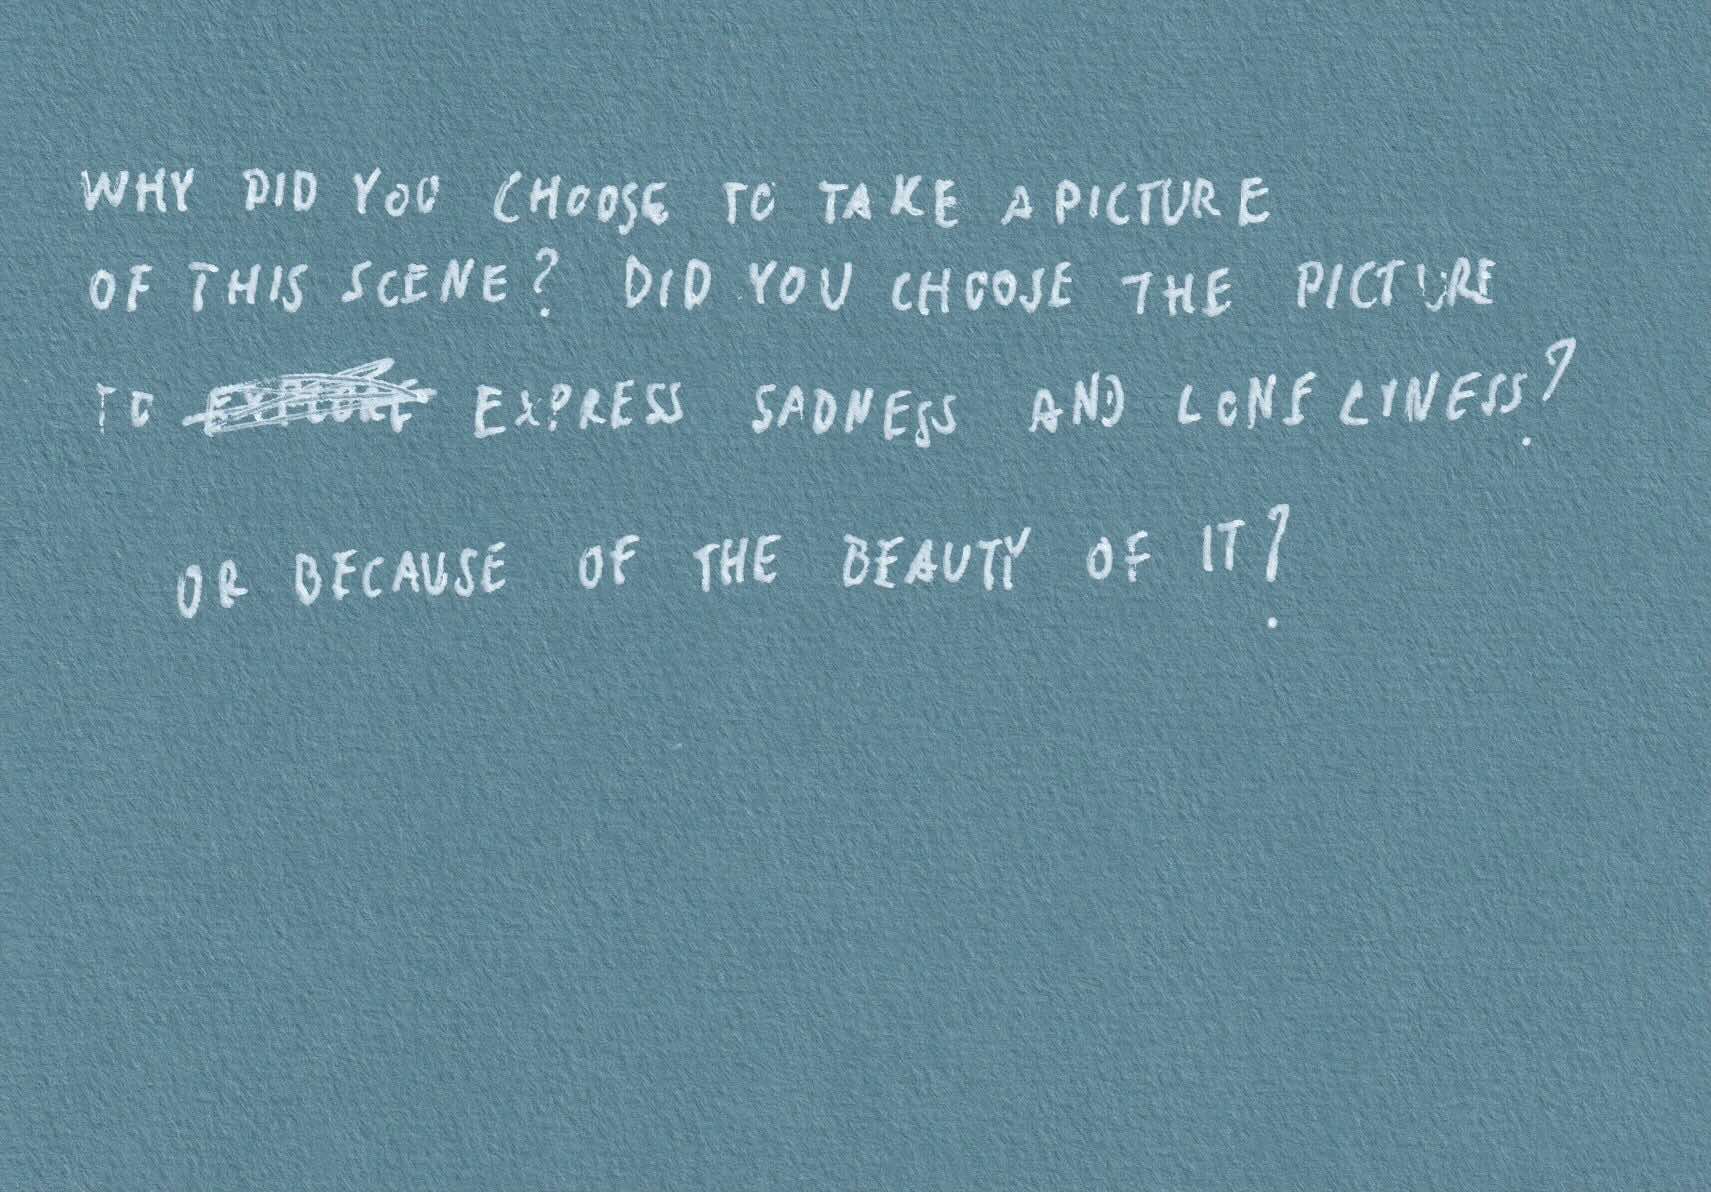 WHY DID YOU CHOOSE TO TAKE A PICTURE
OF THIS SCENE? DID YOU CHOOSE THE PICTURE
TO EXPRESS SADNESS AND LONELYNESS?
OR BECAUSE OF THE BEAUTY OF IT?